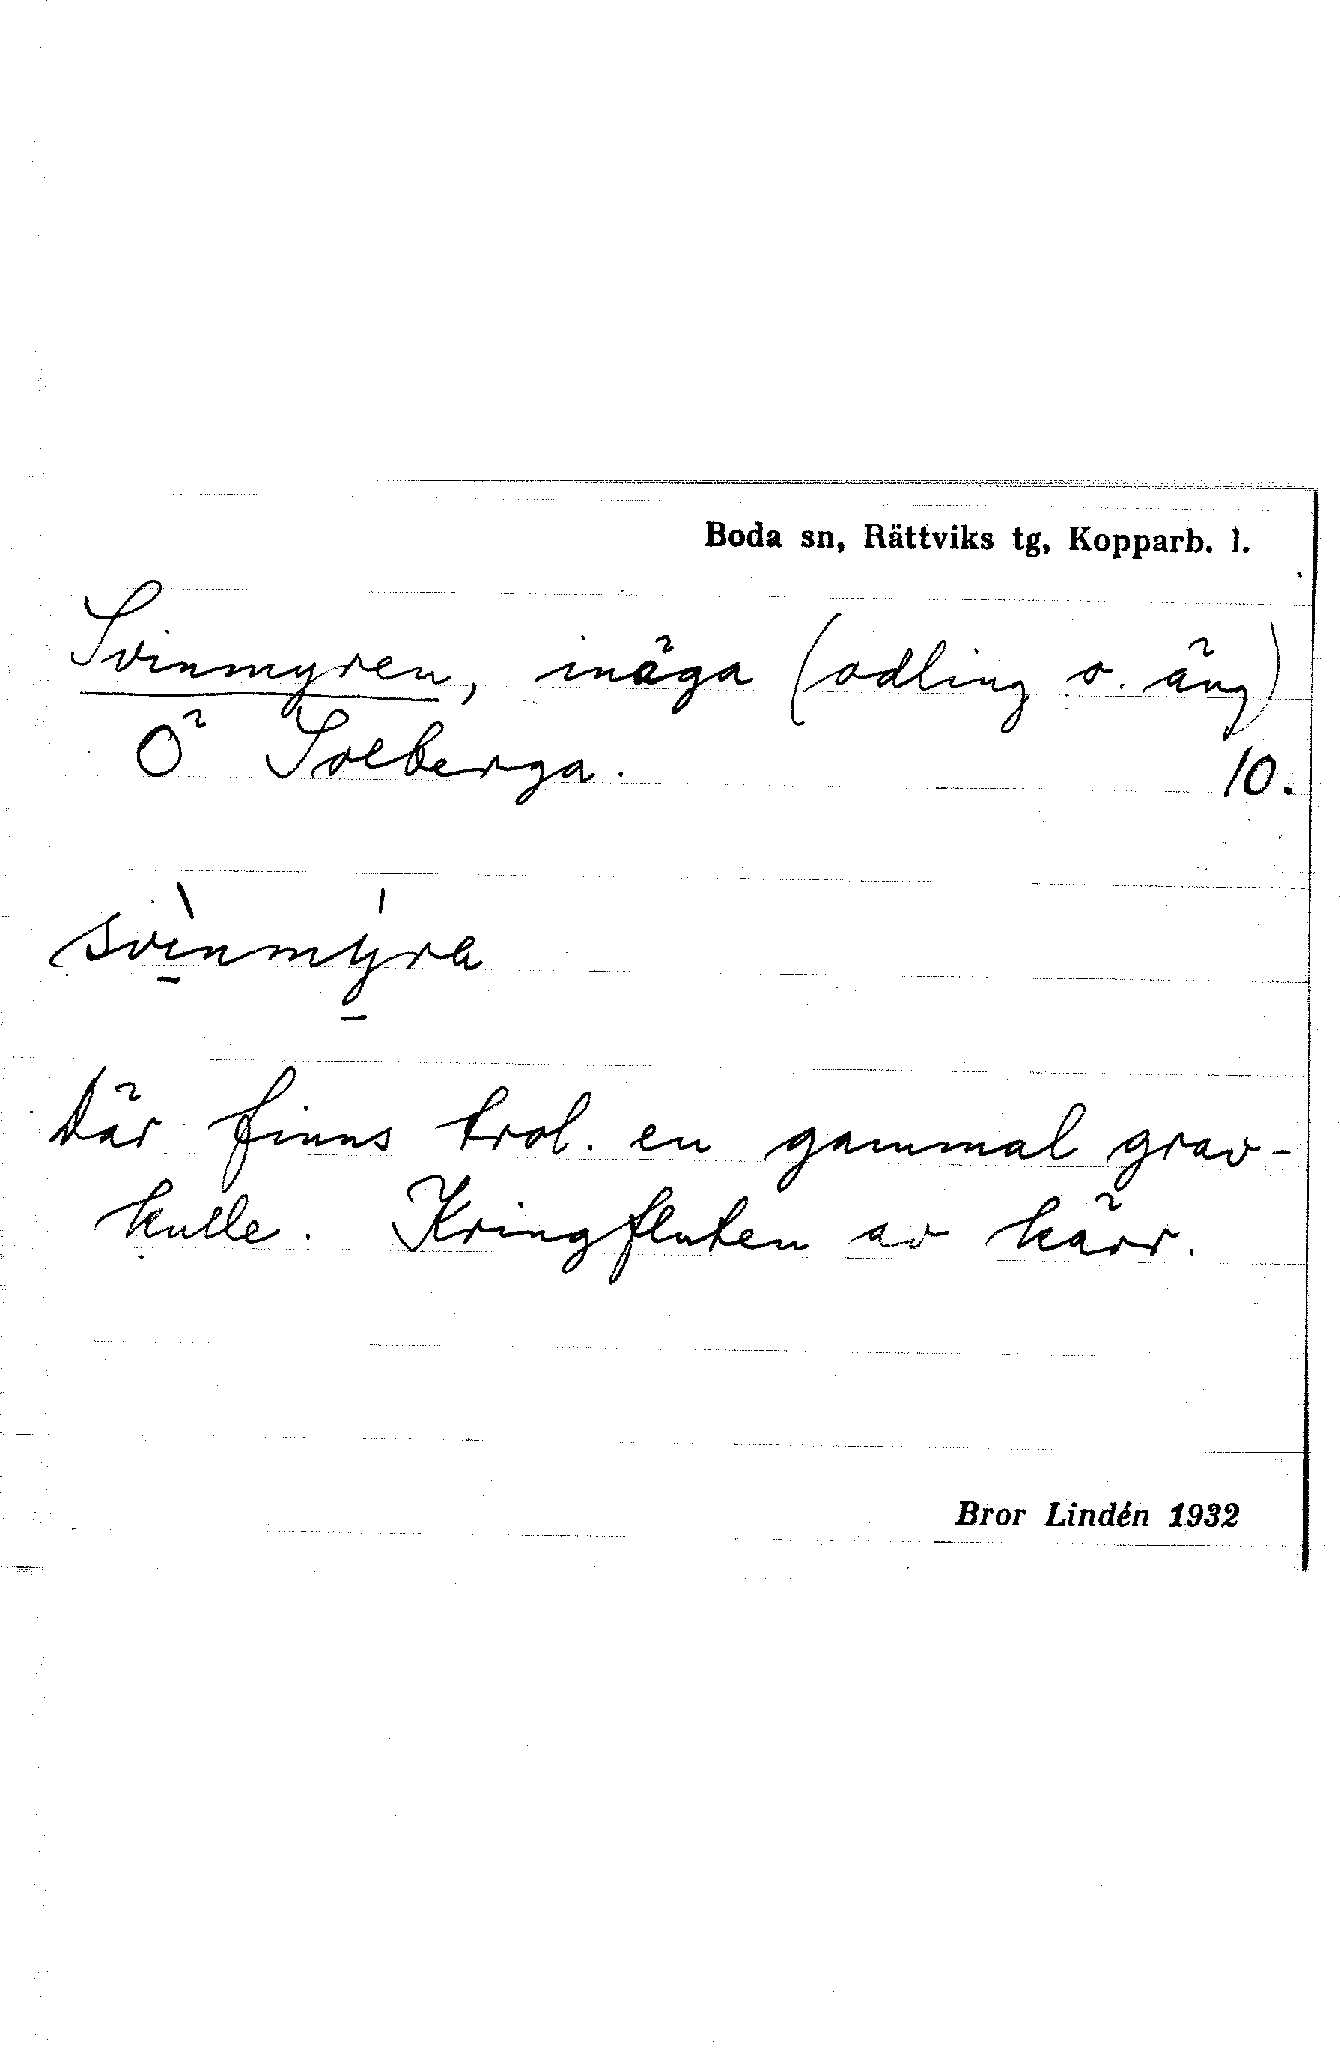 Boda sn, Rättviks tg, Kopparb. l.
Svinmyren, inäga (odling o. äng)
Ö Solberga. 10.
svìnmýra
Där finns trol. en gammal grav-
kulle. Kringfluten av kärr.
Bror Lindén 1932